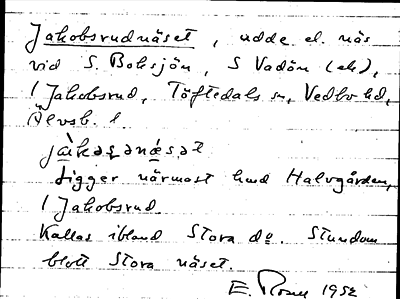 Jakobsrudnäset, udde el. näs
vid S. Boksjön, S Vadön (ek),
1 Jakobsrud, Töftedals sn, Vedbo hd,
Älvsb. l.
Ligger närmast hmd Halvgården,
1 Jakobsrud.
Kallas ibland Stora do. Stundom
blott Stora näset.
E. 1952